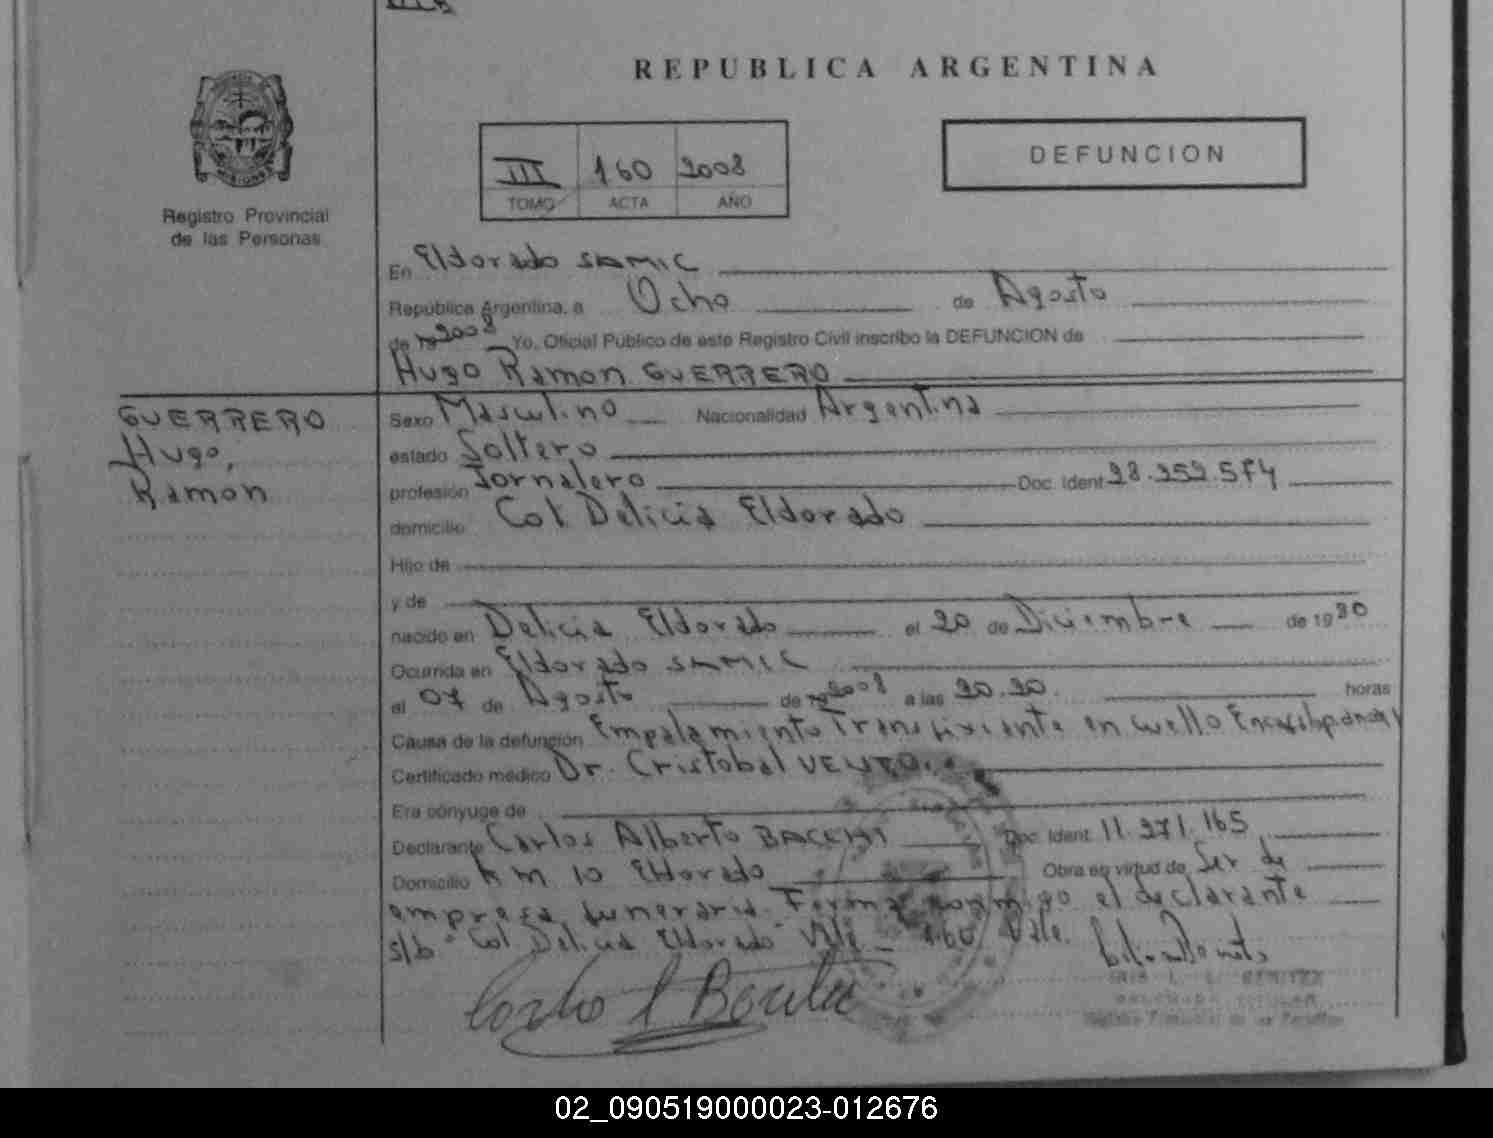 REPUBLICA ARGENTINA
III 160 2008
TOMO ACTA AÑO
DEFUNCION
MISIONES
Registro Provincial
de las Personas
En Eldorado SAMIC
República Argentina, a Ocho de Agosto
de 19 2008 Yo, Oficial Público de este Registro Civil inscribo la DEFUNCION de
Hugo Ramon GUERRERO
GUERRERO
Hugo,
Ramon
Sexo Masculino Nacionalidad Argentina
estado Soltero
profesión Jornalero Doc. Ident. 28.252.574
domicilio Col. Delicia Eldorado
Hijo de
y de
nacido en Delicia Eldorado el 20 de Diciembre de 1980
Ocurrida en Eldorado SAMIC
el 07 de Agosto de 19 2008 a las 20.20. horas
Causa de la defunción Empalamiento Transfixiante en cuello
Certificado médico Dr. Cristobal
Era cónyuge de
Declarante Carlos Alberto Doc. Ident. 11.271.165
Domicilio Km 10 Eldorado Obra en virtud de Ser de
empresa funeraria. Firma conmigo el declarante
s/b "Col. Delicia Eldorado" Vale _ 160 Vale.
BENITEZ
02_090519000023-012676